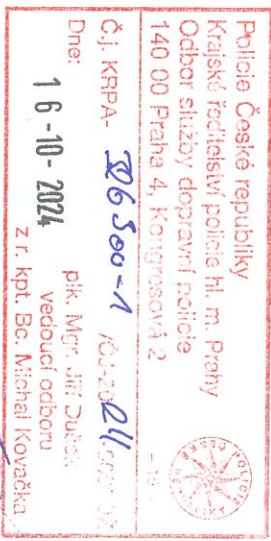 Policie České republiky
Krajské ředitelství policie hl. m. Prahy
Odbor služby dopravní policie
140 00 Praha 4, Kongresová 2
Č.j. KRPA- /ČJ-2024
Dne: plk. Mgr. Jiří
16-10-2024 vedoucí odboru
z r. kpt. Bc. Michal Kovačka